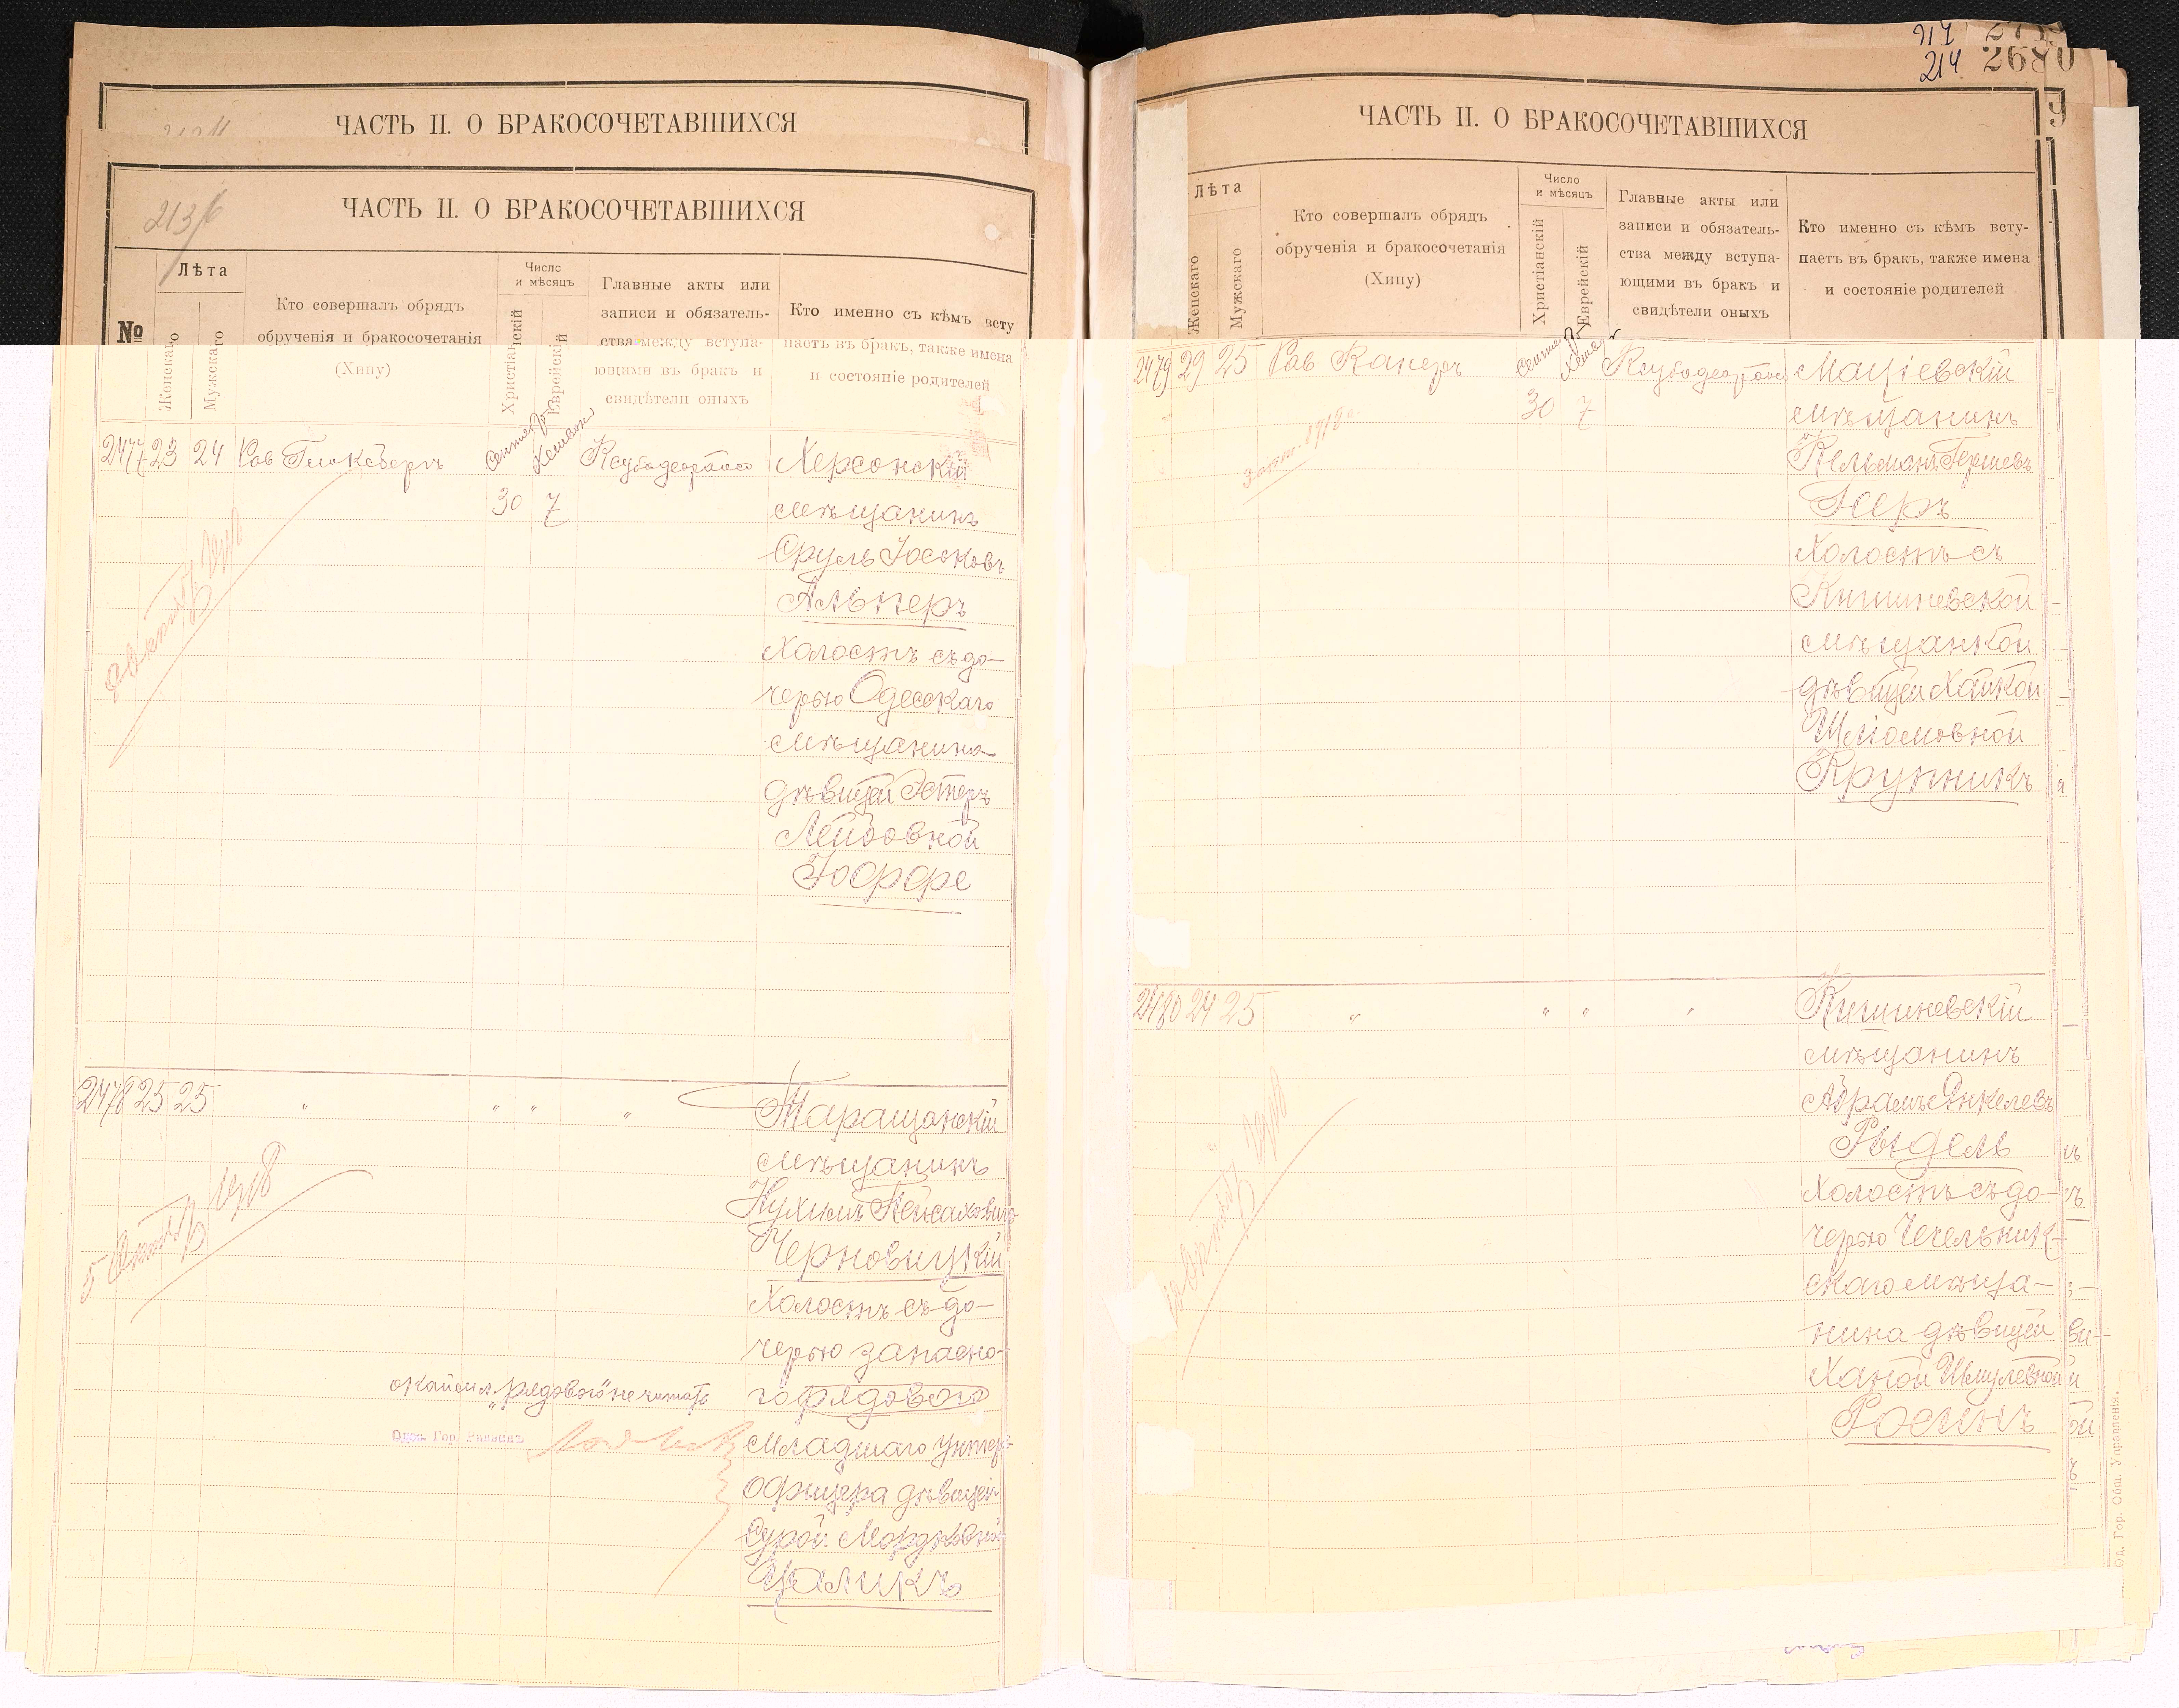 ЧАСТЬ II. О БРАКОСОЧЕТАВШИХСЯ
213/б
ЧАСТЬ II. О БРАКОСОЧЕТАВШИХСЯ
№
Лѣта
Женскаго
Мужскаго
Кто совершалъ обрядъ
обрученія и бракосочетанія
(Хипу)
Число
и мѣсяцъ
Христіанскій
Еврейскій
Главные акты или
записи и обязатель-
ства между вступа-
ющими въ бракъ и
свидѣтели оныхъ
Кто именно съ кѣмъ всту
паетъ въ бракъ, также имена
и состояніе родителей
2477 23 24 Рав
30 7
Херсонскій
мѣщанинъ
Сруль Іосковъ
Альперъ
Холостъ съ до-
черью Одесскаго
мѣщанина
дѣвицей Эстеръ
Лейбовной
Іоффе
2478 25 25 " " " "
Таращанскій
мѣщанинъ
Нухимъ
Черновицкій
Холостъ съ до-
черью запасно-
го рядового
младшаго унтеръ-
офицера дѣвицей
Сурой
Цаликъ
"рядового" не читать
Одес. Гор. Раввинъ
5 Октяб 1918
214
214 2680
ЧАСТЬ II. О БРАКОСОЧЕТАВШИХСЯ
9
Лѣта
Женскаго
Мужскаго
Кто совершалъ обрядъ
обрученія и бракосочетанія
(Хипу)
Число
и мѣсяцъ
Христіанскій
Еврейскій
Главные акты или
записи и обязатель-
ства между вступа-
ющими въ бракъ и
свидѣтели оныхъ
Кто именно съ кѣмъ всту-
паетъ въ бракъ, также имена
и состояніе родителей
2479 29 25 Рав
30 7
Маціевскій
мѣщанинъ
Кельманъ Гершевъ
Холостъ съ
Кишиневской
мѣщанкой
дѣвицей Хайкой
Шліомовной
Крупникъ
2480 24 25 " " " "
Кишиневскій
мѣщанинъ
Абрамъ Янкелевъ
Рыдель
Холостъ съ до-
черью Чечельник-
скаго мѣща-
нина дѣвицей
Ханой Шмулевной
Росинъ
Од. Гор. Общ. Управленія.